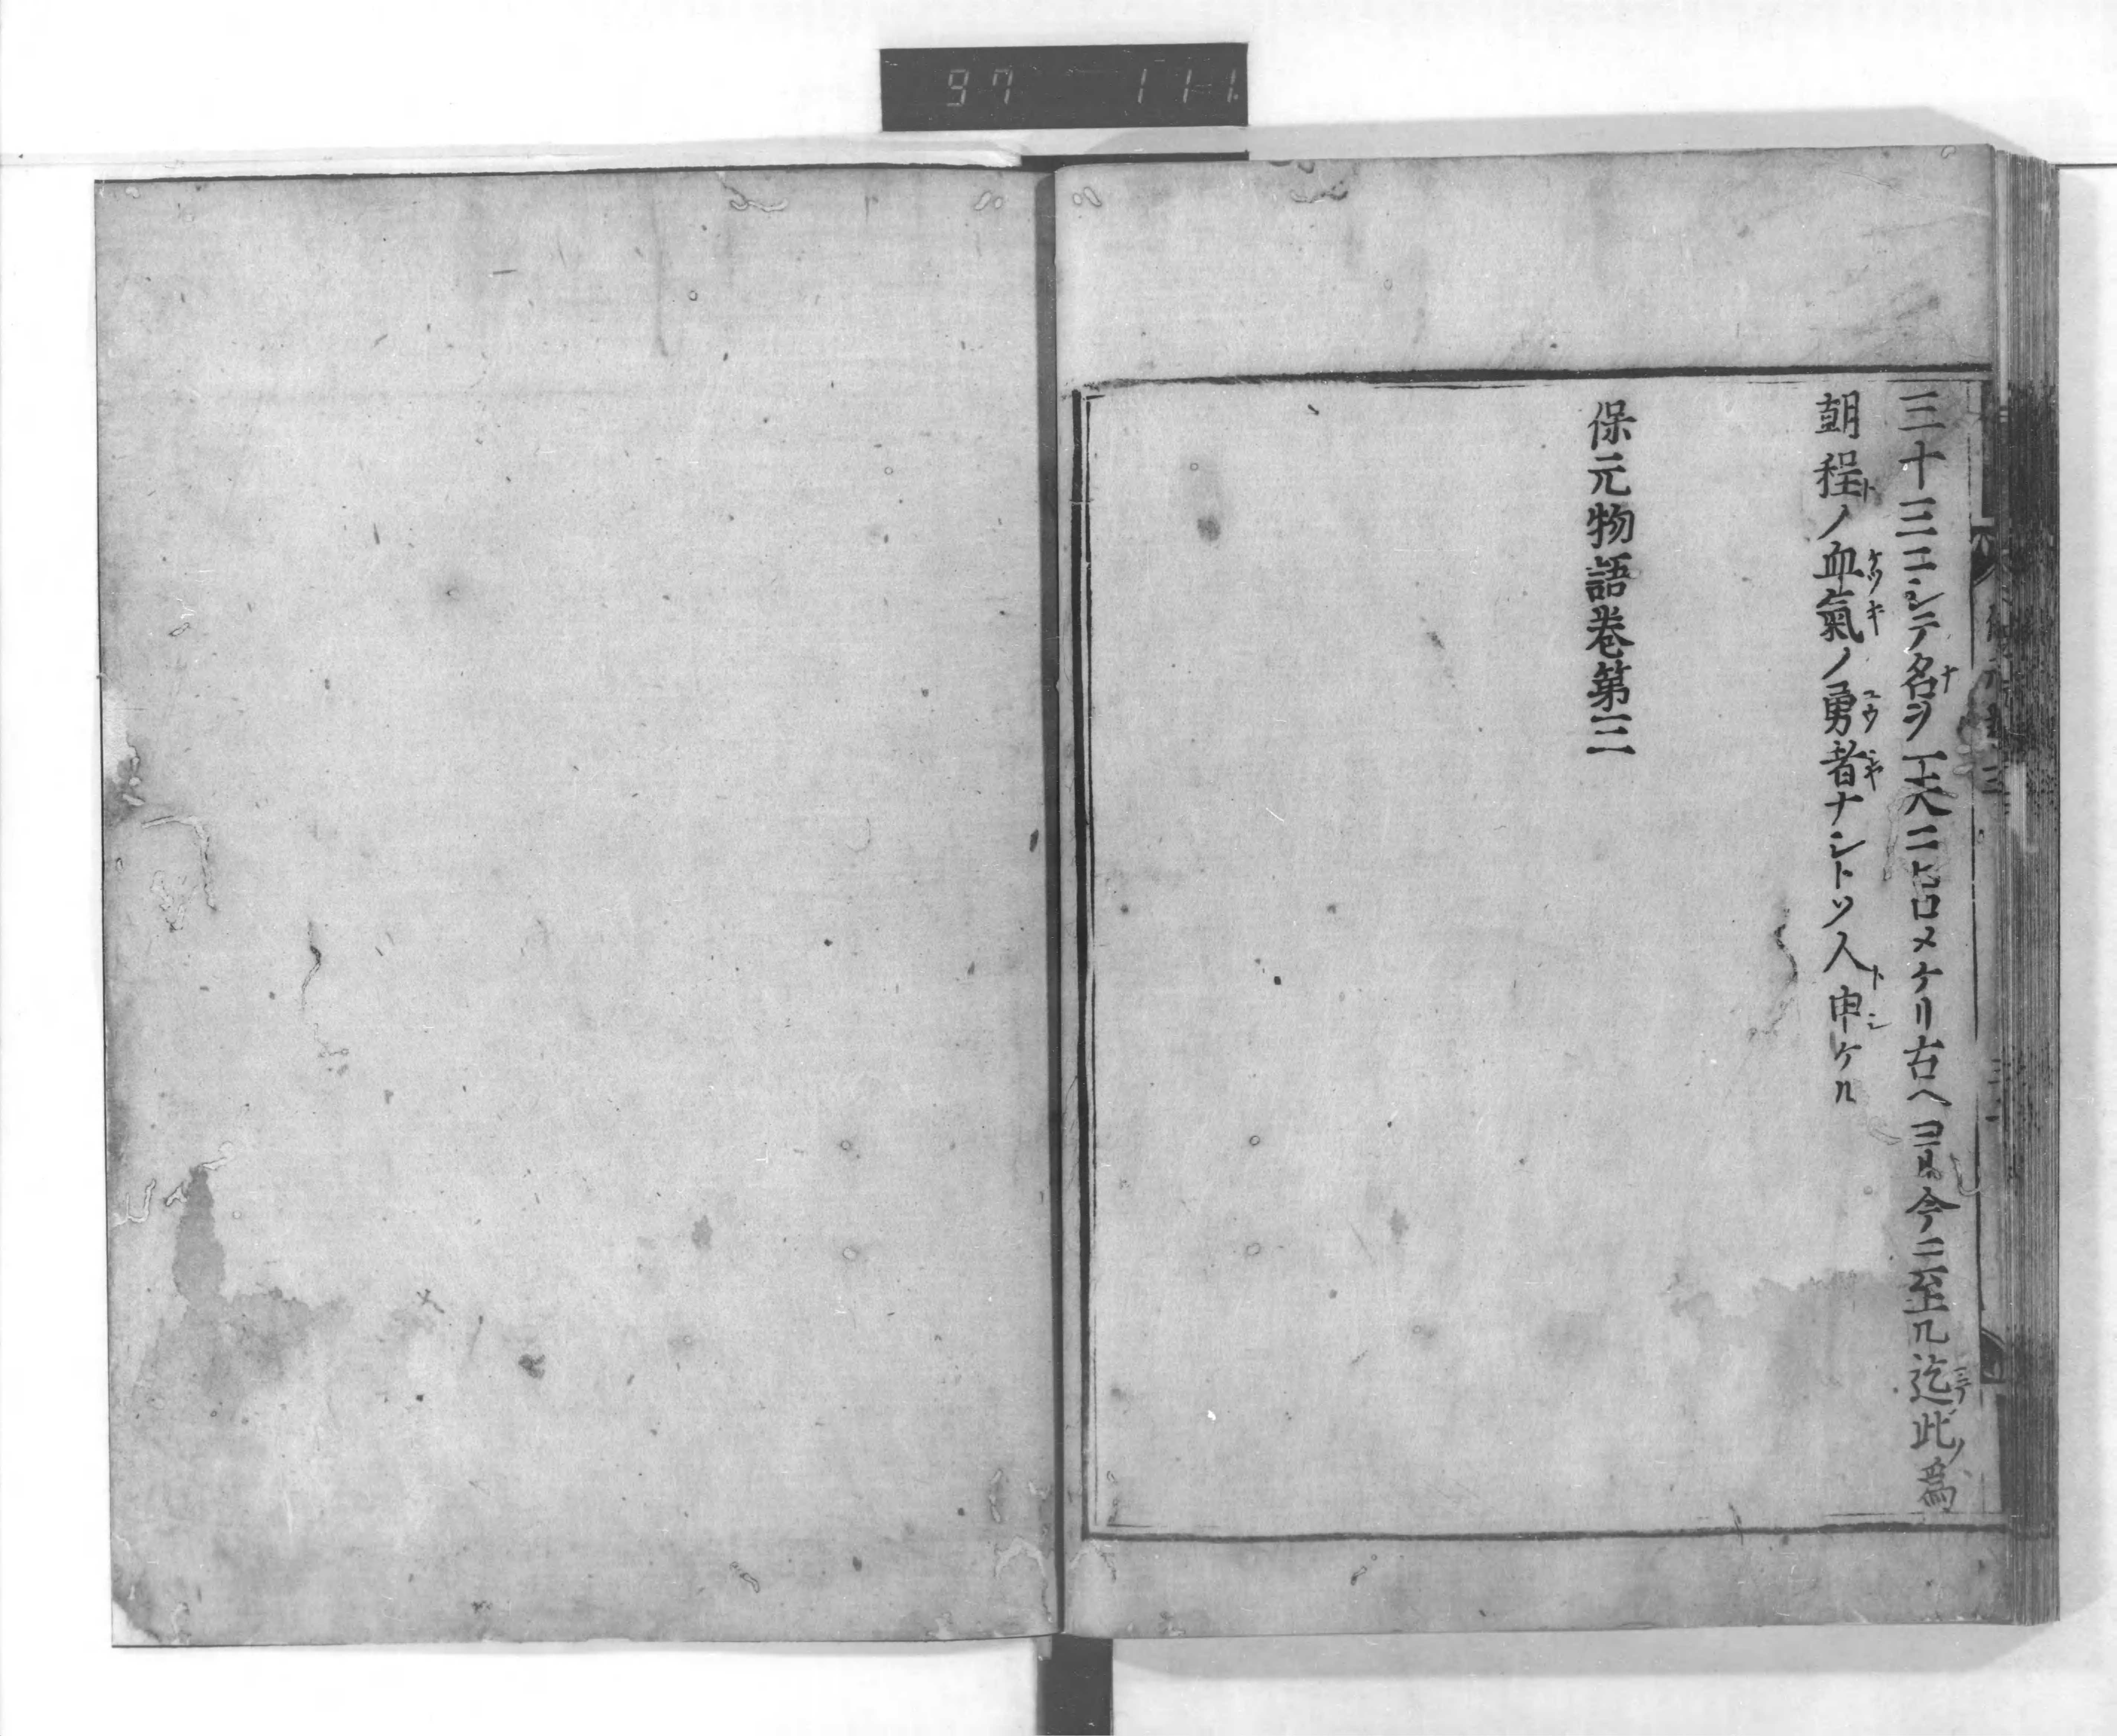 三十三ニシテ名ヲ一天ニヒロメケリ古ヘヨリ今ニ至ル迄此爲
朝程ノ血氣ノ勇者ナシトソ人申ケル
保元物語卷第三
97 11-1